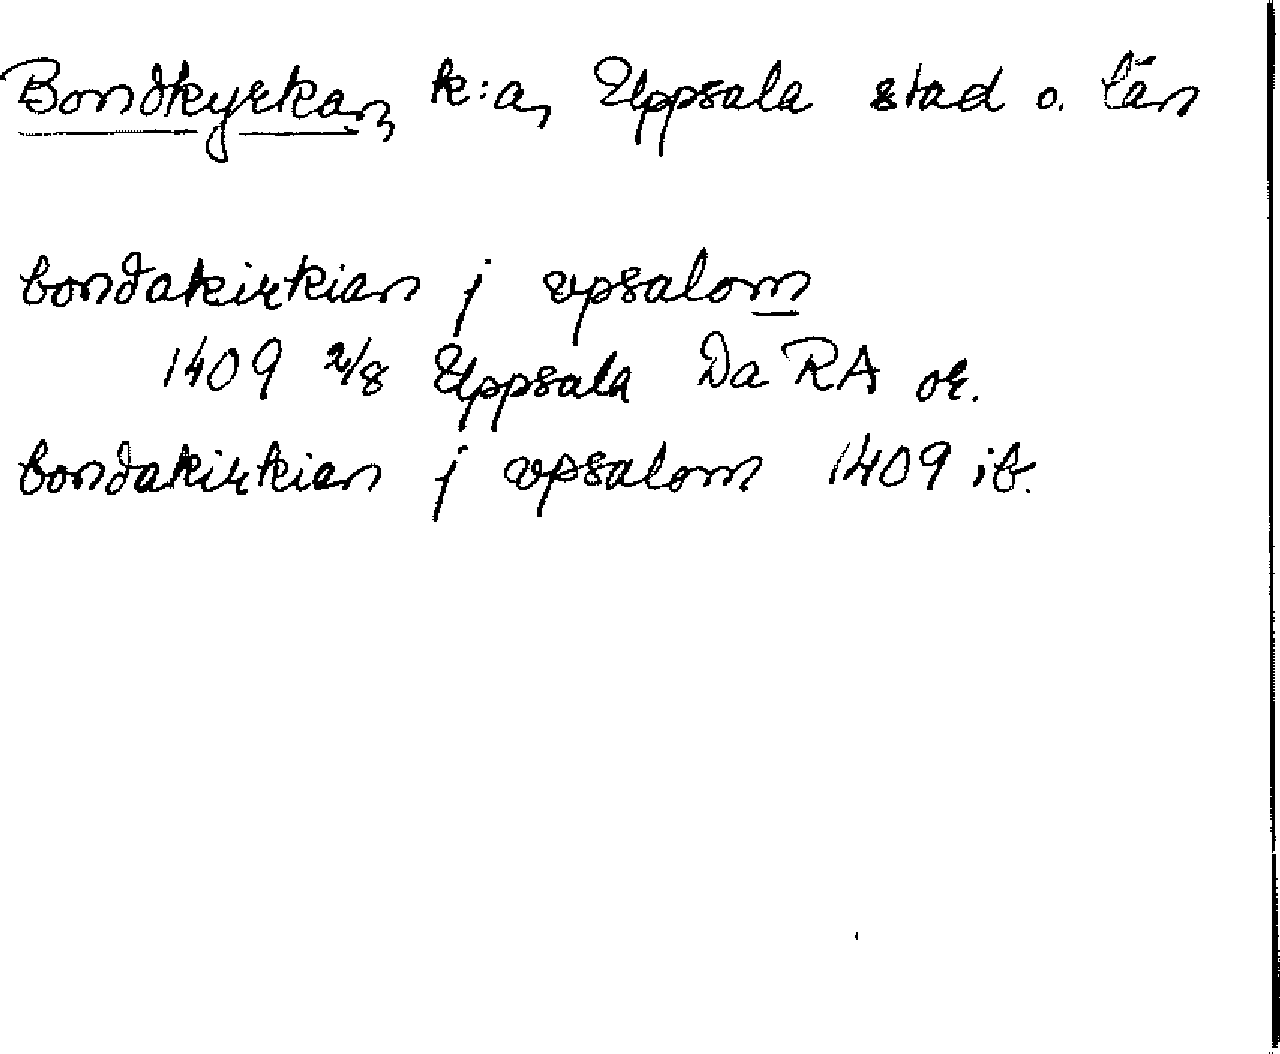 Bondkyrkan, k:a, Uppsala stad o. län
bondakirkian j vpsalom
1409 2/8 Uppsala Da RA or.
bondakirkian j vpsalom 1409 ib.